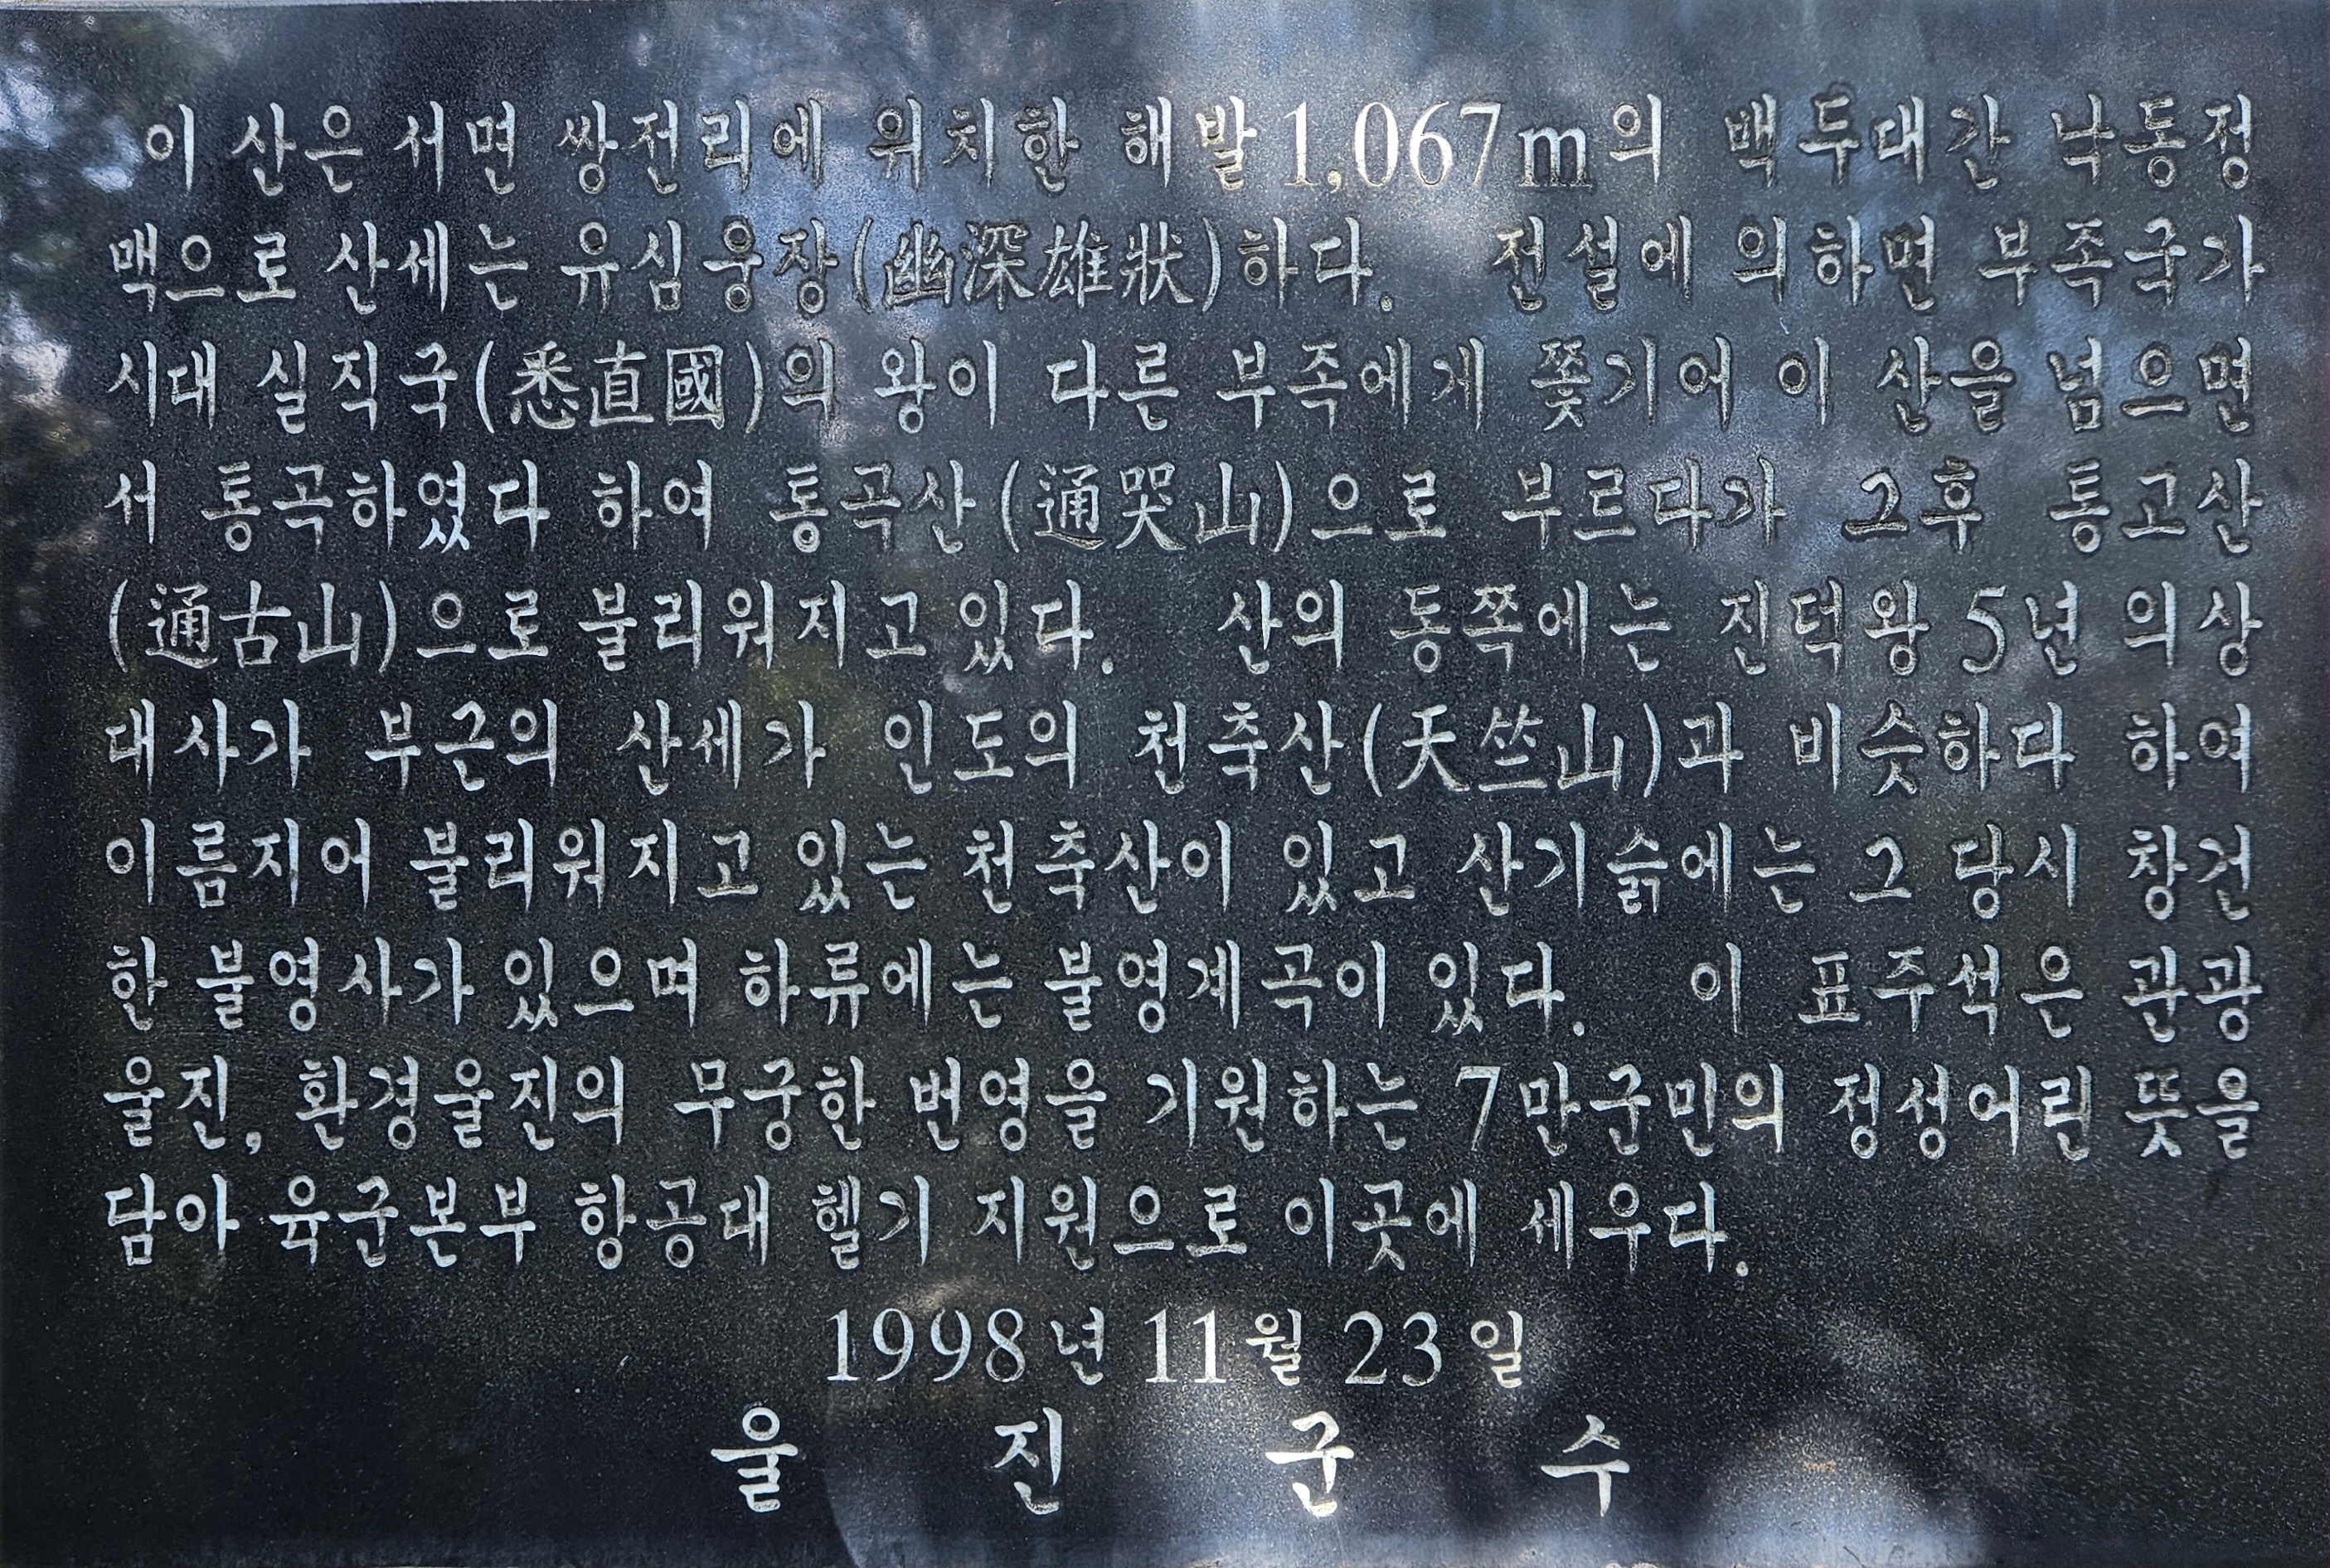 이 산은 서면 쌍전리에 위치한 해발 1,067m의 백두대간 낙동정
맥으로 산세는 유심웅장(幽深雄狀)하다. 전설에 의하면 부족국가
시대 실직국(悉直國)의 왕이 다른 부족에게 쫓기어 이 산을 넘으면
서 통곡하였다 하여 통곡산(通哭山)으로 부르다가 그후 통고산
(通古山)으로 불리워지고 있다. 산의 동쪽에는 진덕왕 5년 의상
대사가 부근의 산세가 인도의 천축산(天竺山)과 비슷하다 하여
이름지어 불리워지고 있는 천축산이 있고 산기슭에는 그 당시 창건
한 불영사가 있으며 하류에는 불영계곡이 있다. 이 표주석은 관광
울진, 환경울진의 무궁한 번영을 기원하는 7만군민의 정성어린 뜻을
담아 육군본부 항공대 헬기 지원으로 이곳에 세우다.
1998년 11월 23일
울 진 군 수